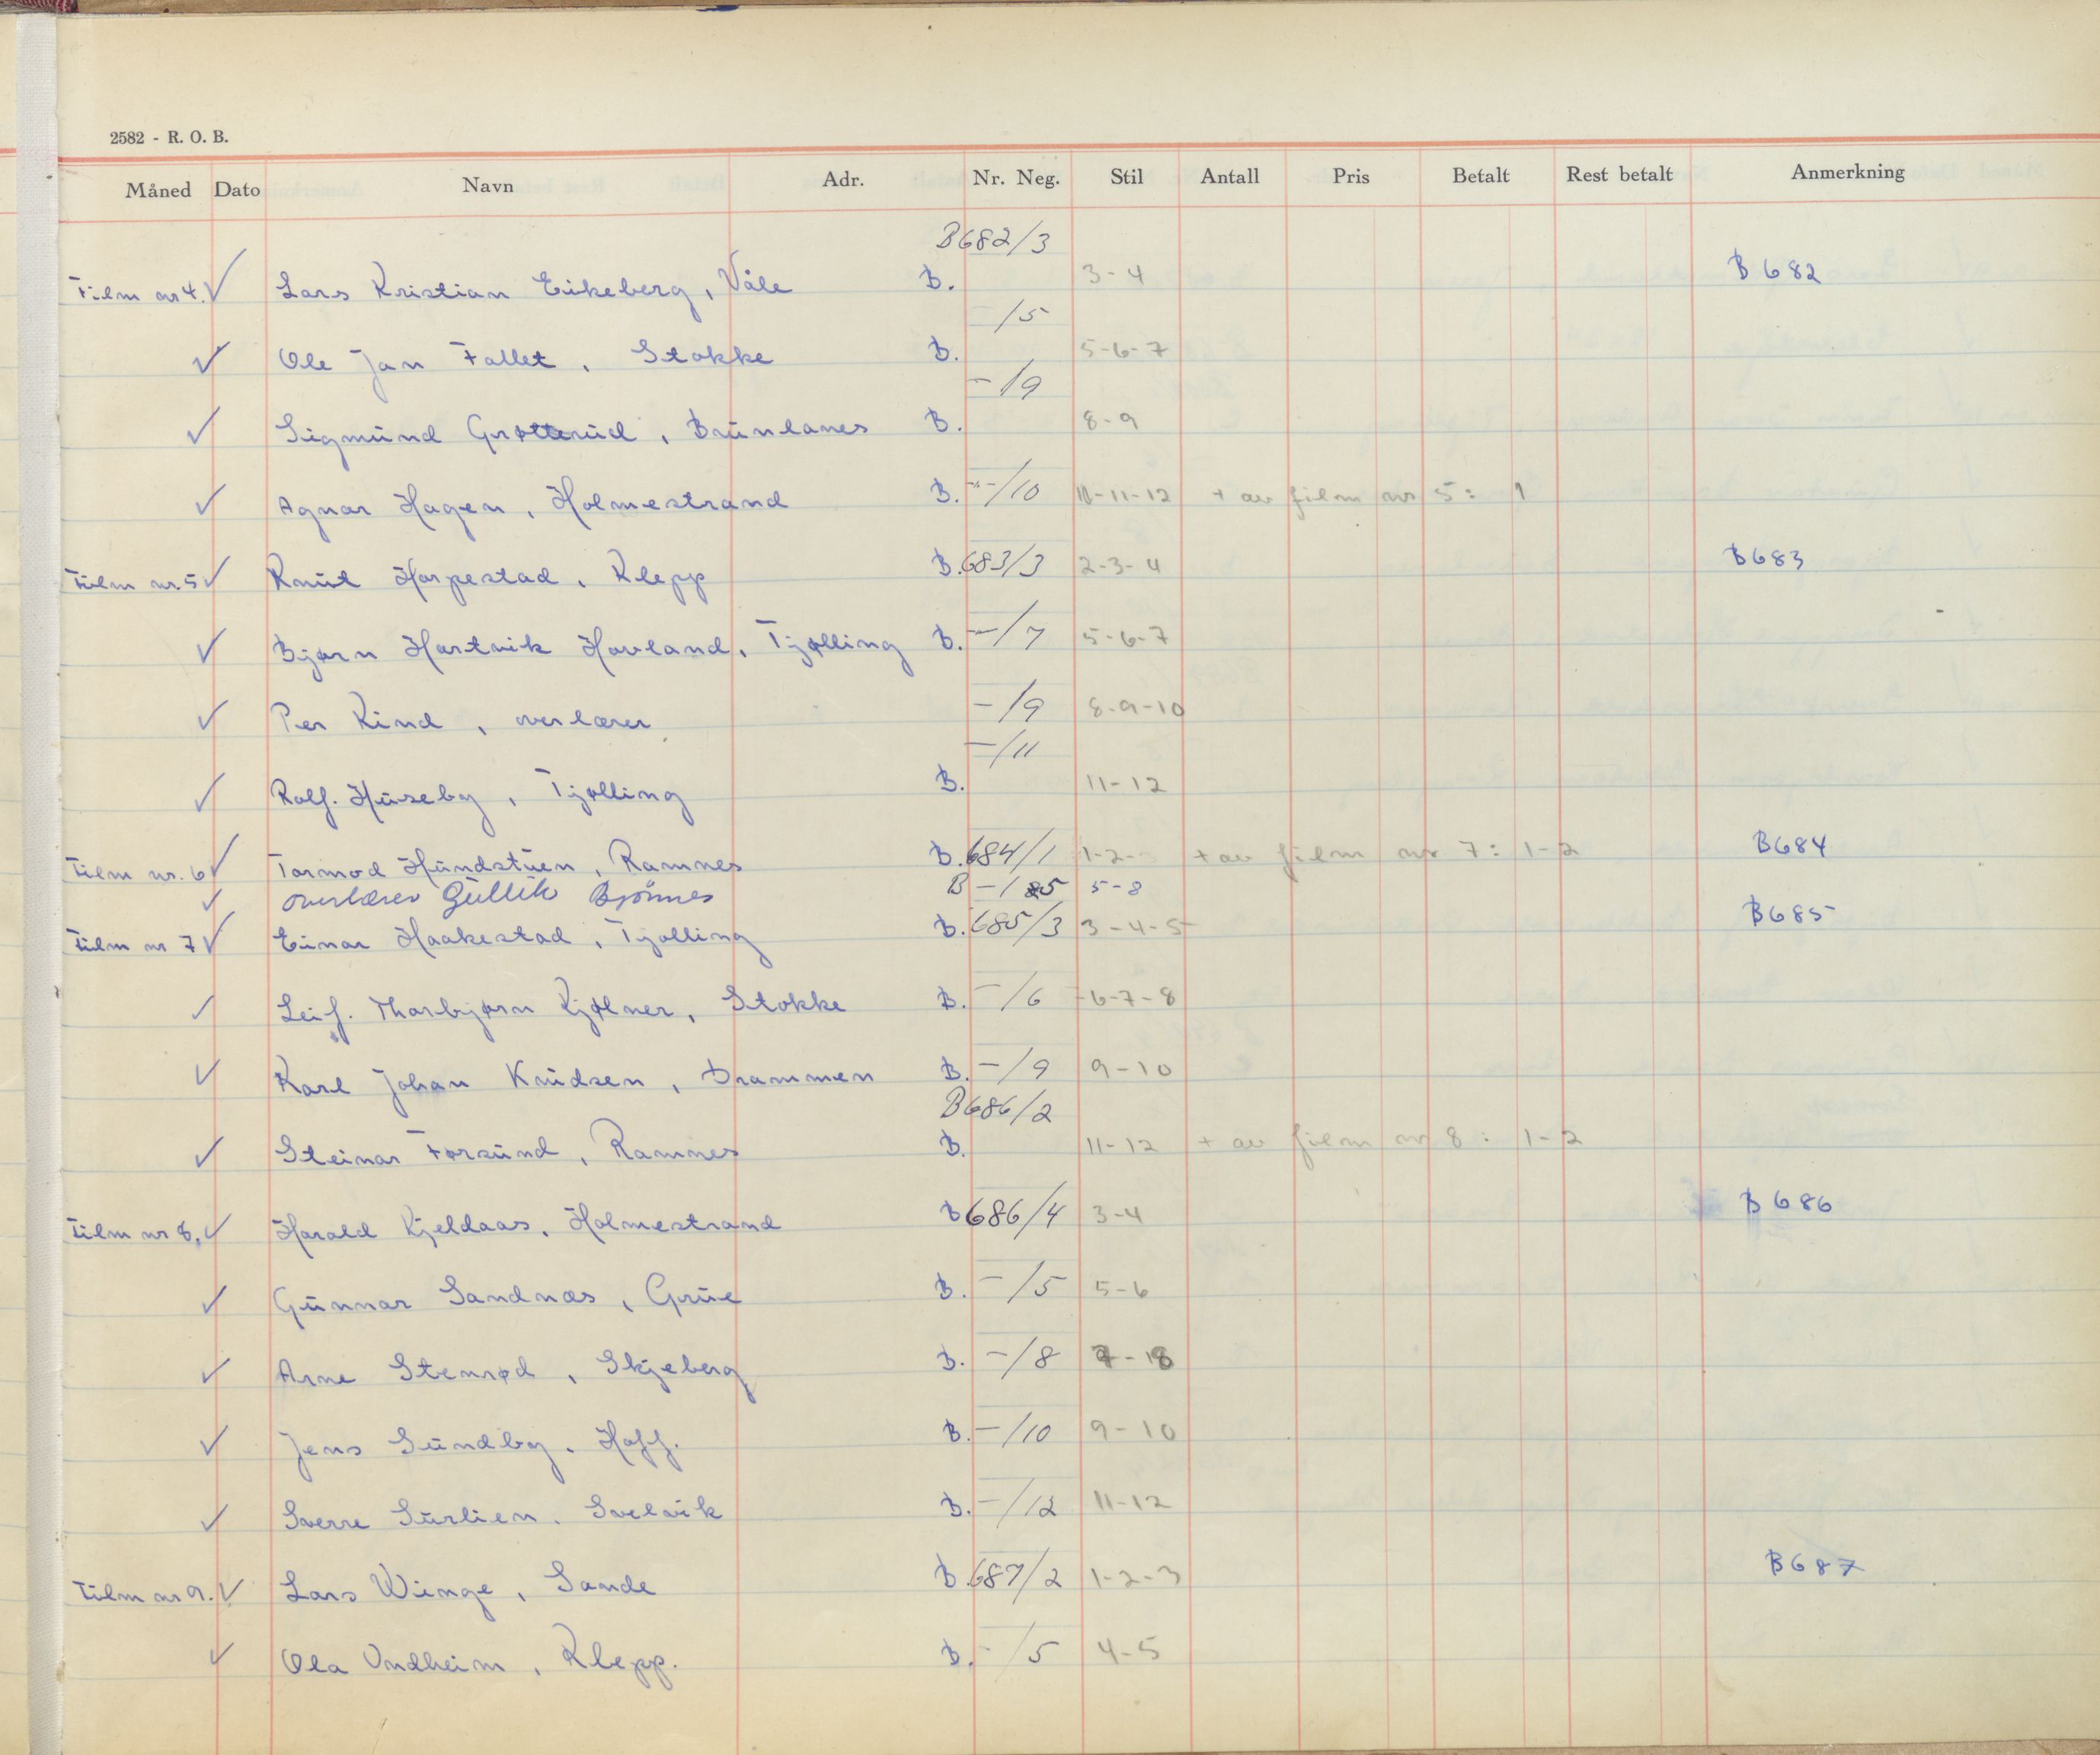 2582 - R. O. B.
Måned Dato Navn Adr. Nr. Neg. Stil Antall Pris Betalt Rest betalt Anmerkning
B682/3
Film nr 4. ✓ Lars Kristian Eikeberg, Våle B. 3-4 B 682
-/5
✓ Ole Jan Fallet, Stokke B. 5-6-7
-/9
✓ Sigmund Grøtterud, Brunlanes B. 8-9
✓ Agnar Hagen, Holmestrand B. -/10 10-11-12 + av film nr 5: 1
Film nr. 5 ✓ Knut Harpestad, Klepp B. 683/3 2-3-4 B683
✓ Bjørn Hartvik Hovland, Tjølling B. -/7 5-6-7
✓ Per Kind, overlærer -/9 8-9-10
-/11
✓ Rolf Huseby, Tjølling B. 11-12
Film nr. 6 ✓ Tormod Hundstuen, Ramnes B. 684/1 1-2- + av film nr 7: 1-2 B684
✓ overlærer Gullik Bjönnes B -/5 5-8
Film nr 7 ✓ Einar Haakestad, Tjølling B. 685/3 3-4-5 B685
✓ Leif Thorbjørn Kjølner, Stokke B. -/6 6-7-8
✓ Karl Johan Knudsen, Drammen B. -/9 9-10
B686/2
✓ Steinar Førsund, Ramnes B. 11-12 + av film nr 8: 1-2
Film nr 8. ✓ Harald Kjeldaas, Holmestrand B 686/4 3-4 B 686
✓ Gunnar Sandnæs, Grue B. -/5 5-6
✓ Arne Stenrød, Skjeberg B. -/8 7-8
✓ Jens Sundby, Hoff. B. -/10 9-10
✓ Sverre Surlien, Svelvik B. -/12 11-12
Film nr 9. ✓ Lars Winge, Sande B. 687/2 1-2-3 B687
✓ Ola Undheim, Klepp. B. -/5 4-5